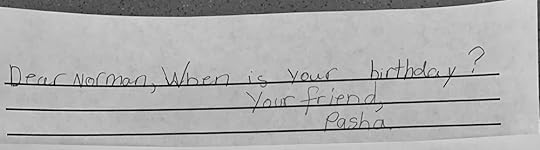 Dear Norman, When is your birthday?
Your friend,
Pasha.